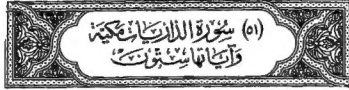 (٥١) سُورَةُ الذَّارِيَاتِ مَكِيَّة
وَآيَاتُهَا سِتُّونَ